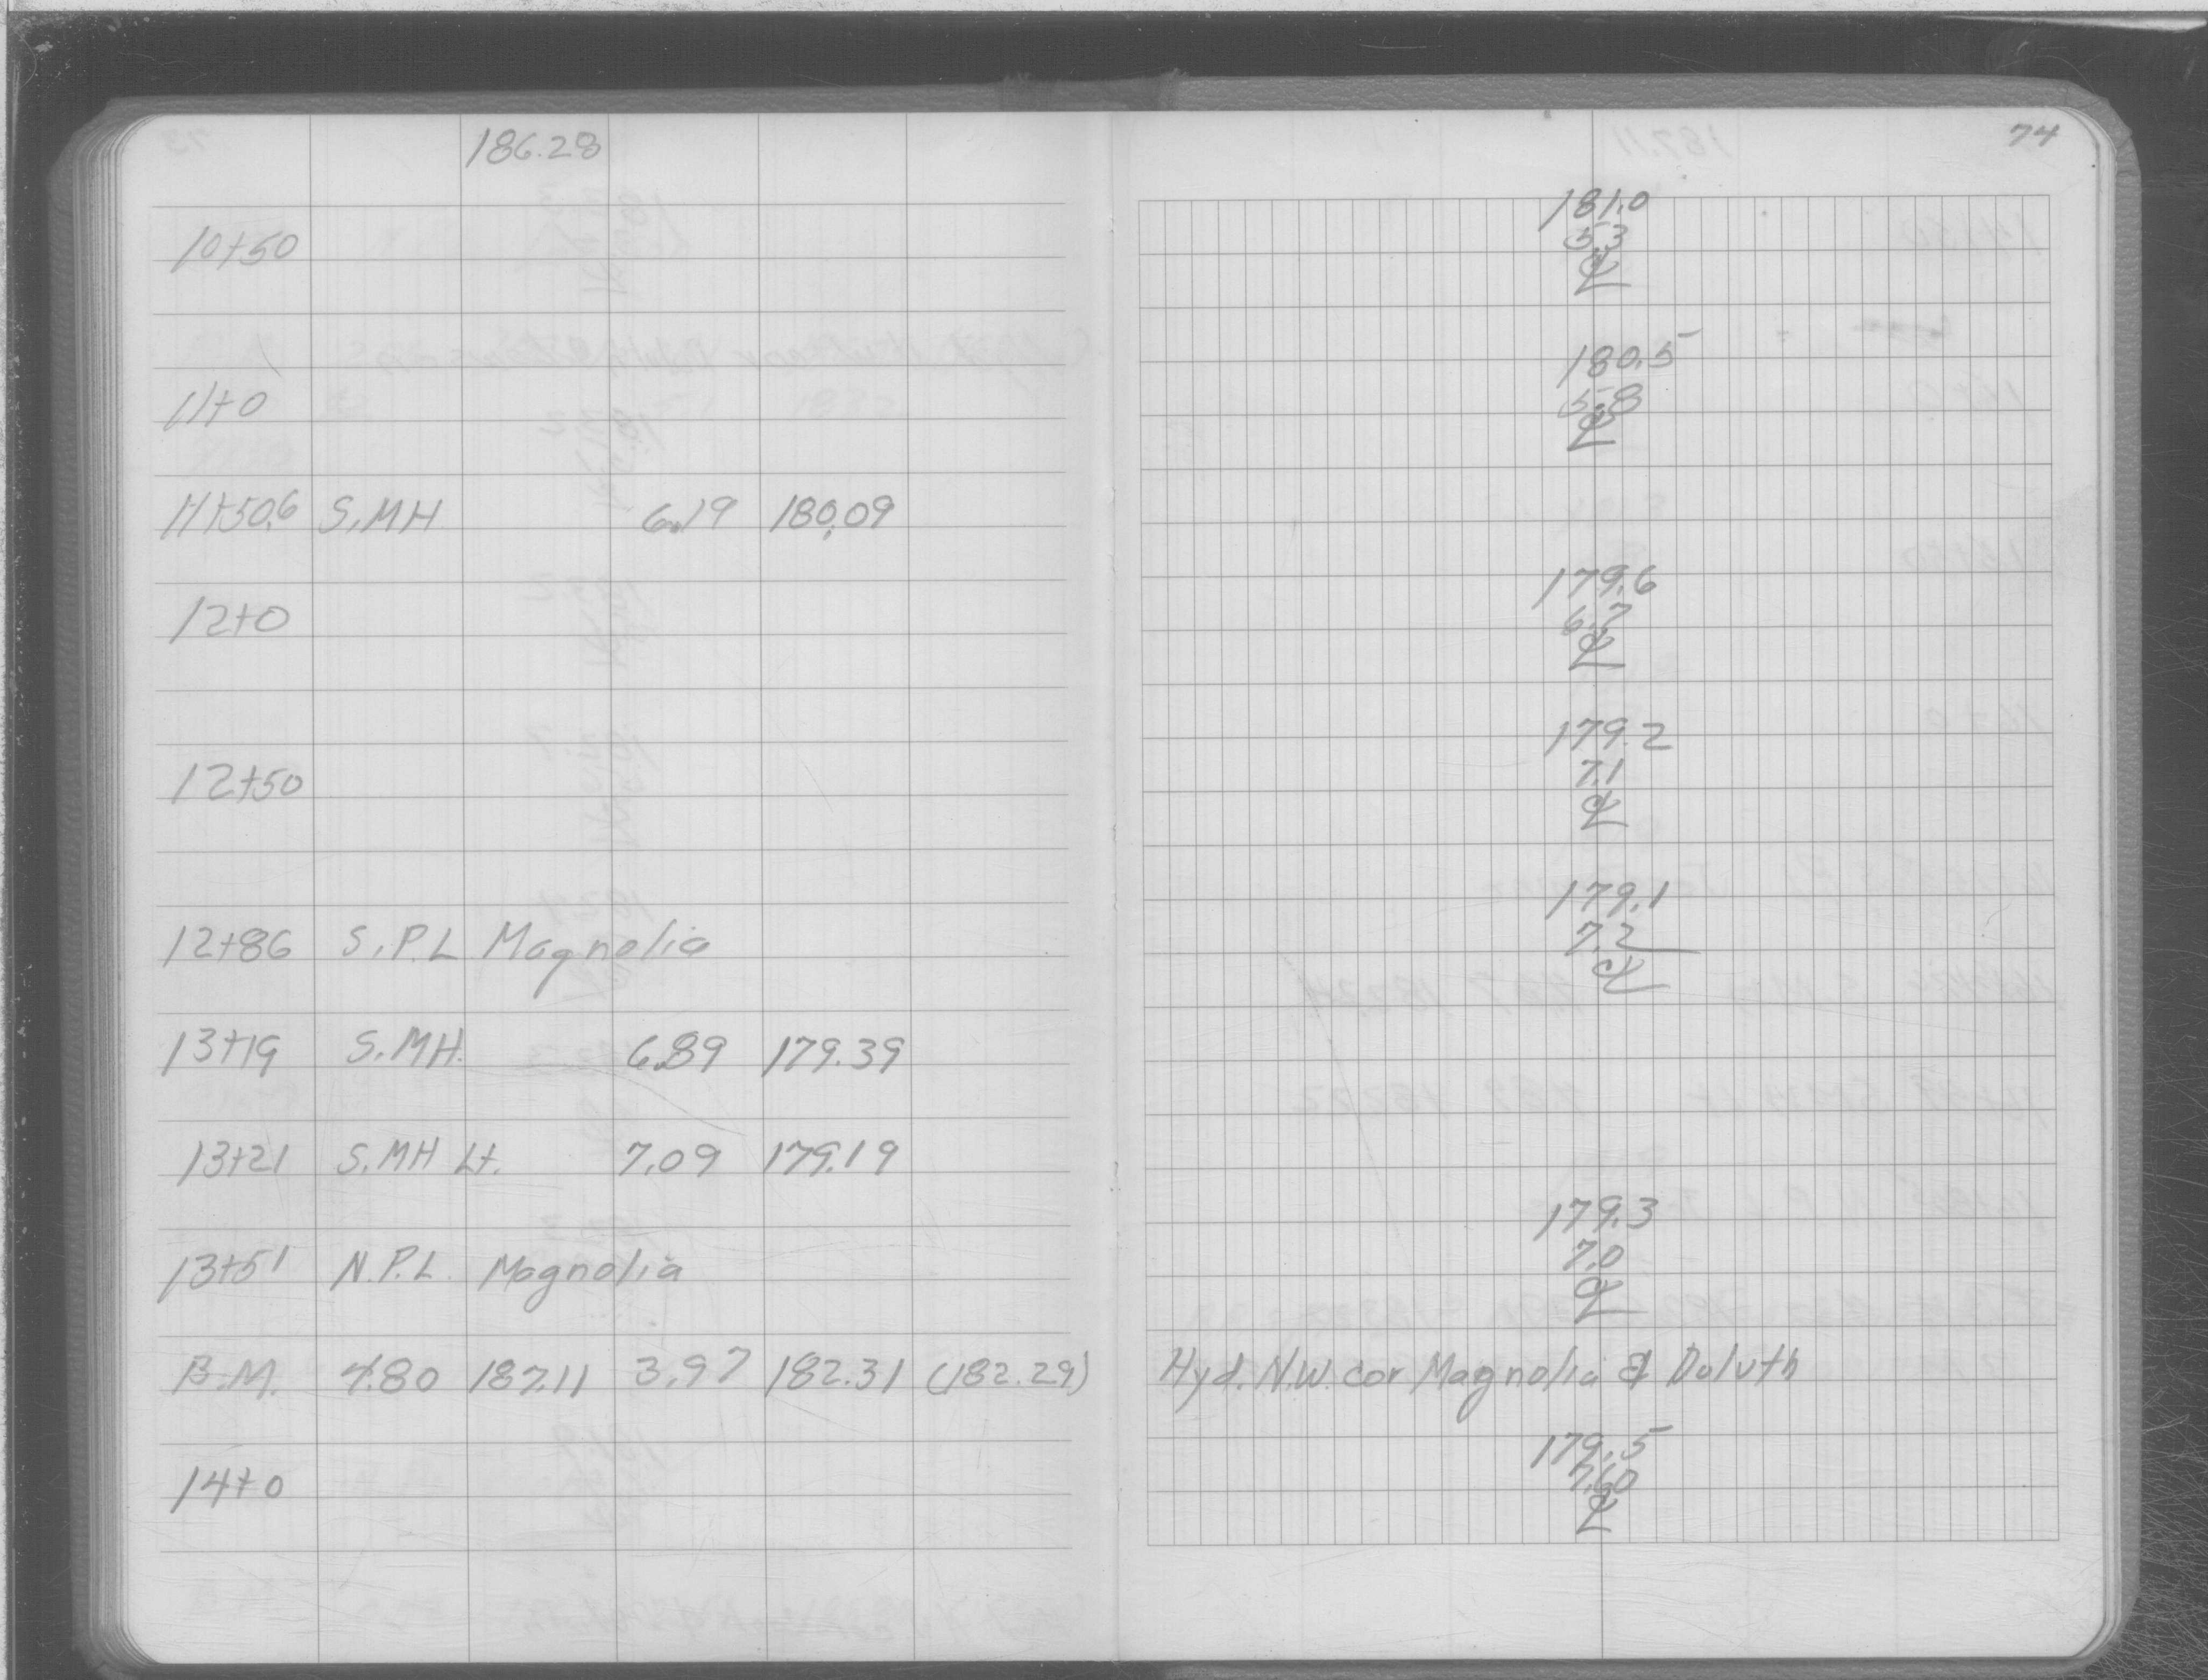 186.28
10+50
11+0
11+50.6 S.MH 6.19 180.09
12+0
12+50
12+86 S.P.L Magnolia
13+19 S.MH. 6.89 179.39
13+21 S.MH Lt. 7.09 179.19
13+51 N.P.L. Magnolia
B.M. 4.80 187.11 3.97 182.31 (182.29)
14+0
74
181.0
5.3
℄
180.5
5.8
℄
179.6
6.7
℄
179.2
7.1
℄
179.1
7.2
℄
179.3
7.0
℄
Hyd. N.W. cor Magnolia & Duluth
179.5
7.60
℄